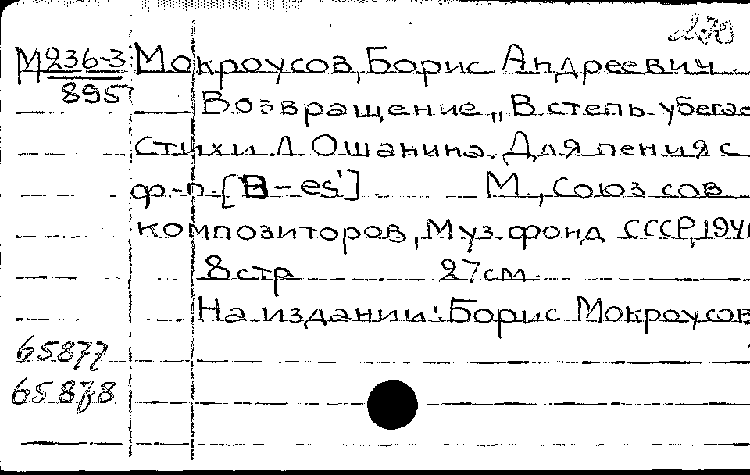 270
М236-3 Мокроусов, Борис Андреевич
895 Возвращение „В степь убегае
Стихи Л Ошанина. Для пения с
ф.-п. [B-es'] М., Союз сов
композиторов, Муз. фонд СССР, 194
8 стр 27 см
На издании: Борис Мокроусов
65877
65878